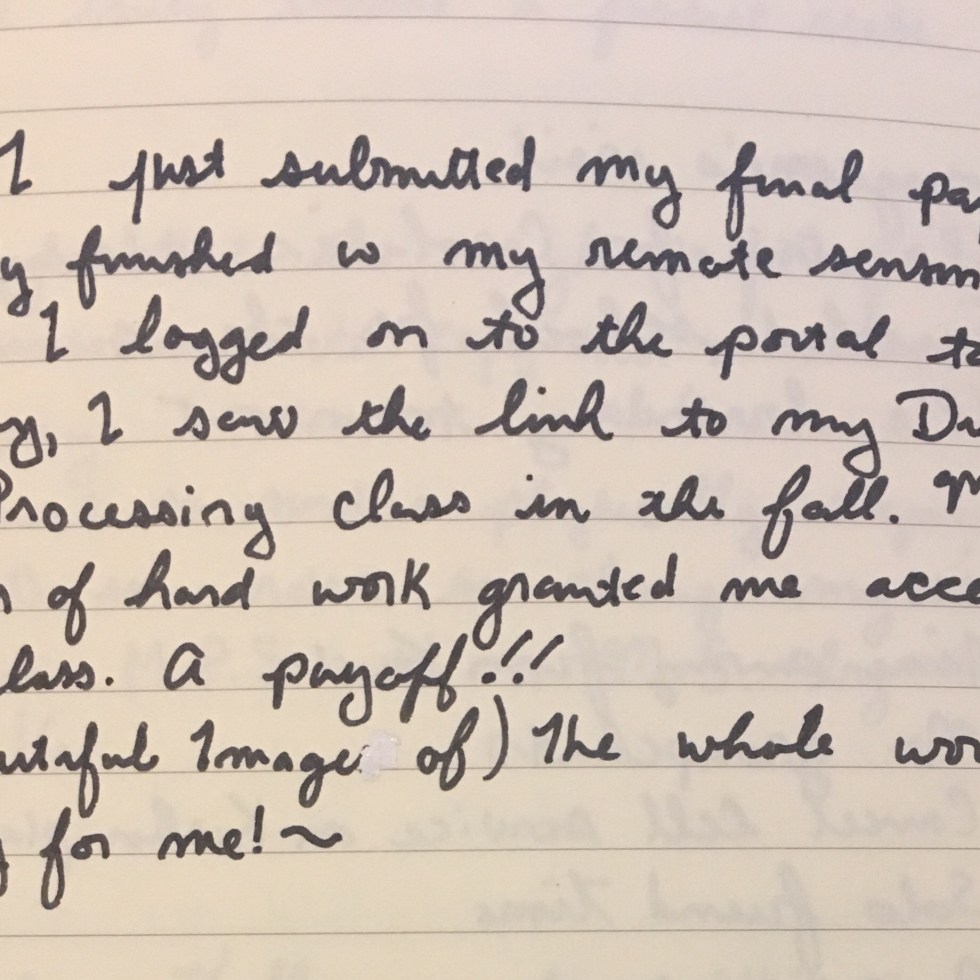 I just submitted my final pa
y finished w my remote sensin
I logged on to the portal to
y, I saw the link to my Di
Processing class in the fall.
of hard work granted me acce
lass. A payoff!!
utiful Image of) The whole wor
for me!~